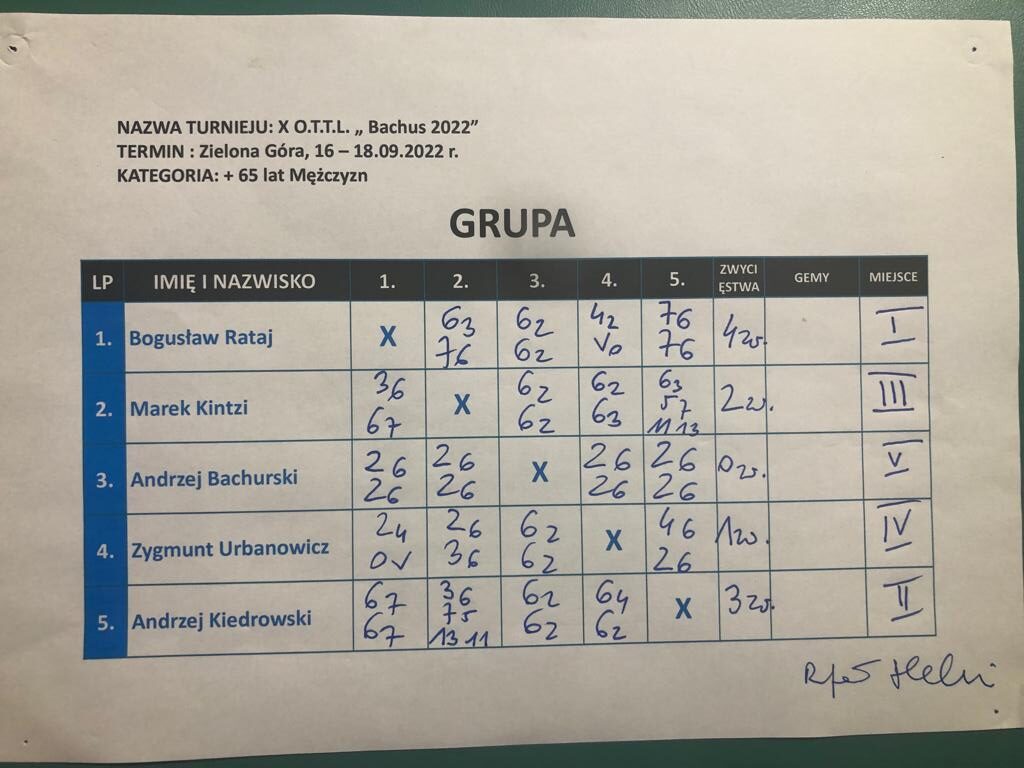 NAZWA TURNIEJU: X O.T.T.L. „ Bachus 2022”
TERMIN : Zielona Góra, 16 – 18.09.2022 r.
KATEGORIA: + 65 lat Mężczyzn
GRUPA
LP IMIĘ I NAZWISKO 1. 2. 3. 4. 5. ZWYCI ĘSTWA GEMY MIEJSCE
1. Bogusław Rataj X 63 76 62 62 42 V0 76 76 4 zw. I
2. Marek Kintzi 36 67 X 62 62 62 63 63 57 11 13 2 zw. III
3. Andrzej Bachurski 26 26 26 26 X 26 26 26 26 0 zw. V
4. Zygmunt Urbanowicz 24 0V 26 36 62 62 X 46 26 1 zw. IV
5. Andrzej Kiedrowski 67 67 36 75 13 11 62 62 64 62 X 3 zw. II